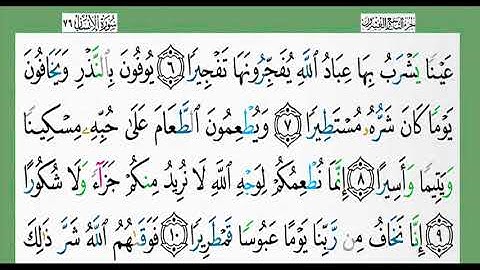 سُورَةُ الْإِنْسَان ٧٦
الجزء التاسع والعشرون
عَيْنًا يَشْرَبُ بِهَا عِبَادُ ٱللَّهِ يُفَجِّرُونَهَا تَفْجِيرًا ٦ يُوفُونَ بِٱلنَّذْرِ وَيَخَافُونَ
يَوْمًا كَانَ شَرُّهُۥ مُسْتَطِيرًا ٧ وَيُطْعِمُونَ ٱلطَّعَامَ عَلَىٰ حُبِّهِۦ مِسْكِينًا
وَيَتِيمًا وَأَسِيرًا ٨ إِنَّمَا نُطْعِمُكُمْ لِوَجْهِ ٱللَّهِ لَا نُرِيدُ مِنكُمْ جَزَآءً وَلَا شُكُورًا
٩ إِنَّا نَخَافُ مِن رَّبِّنَا يَوْمًا عَبُوسًا قَمْطَرِيرًا ١٠ فَوَقَىٰهُمُ ٱللَّهُ شَرَّ ذَٰلِكَ